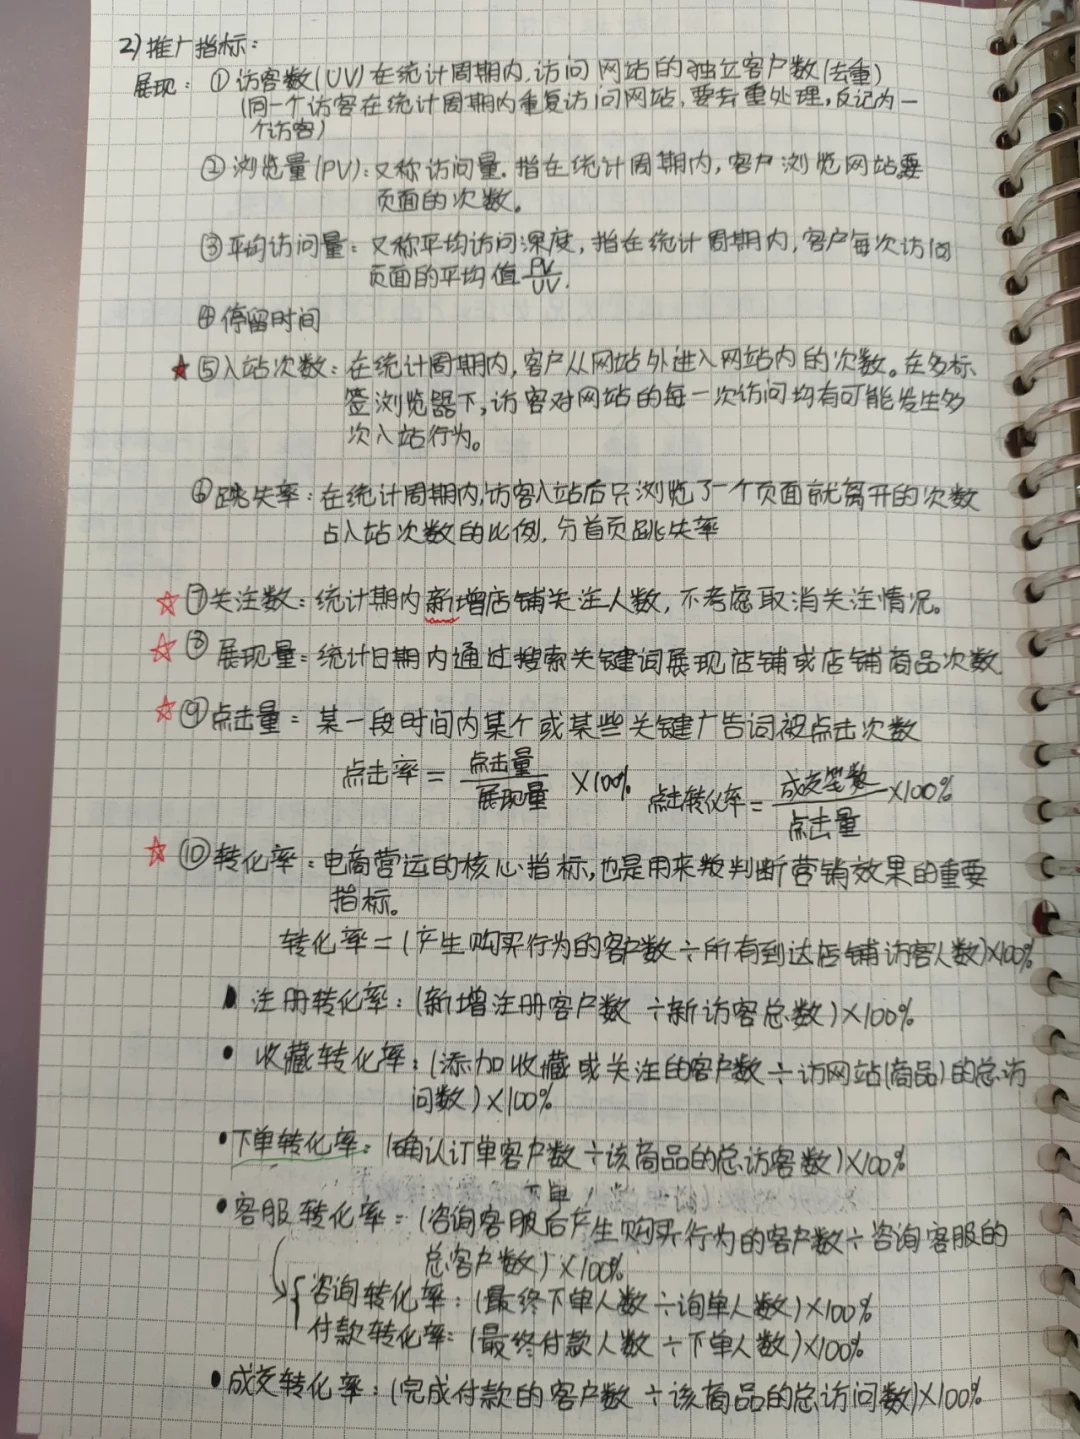 2)推广指标:
展现: ①访客数(UV)在统计周期内,访问网站的独立客户数(去重)
(同一个访客在统计周期内重复访问网站,要去重处理,反记为一
个访客)
②浏览量(PV):又称访问量.指在统计周期内,客户浏览网站
页面的次数。
③平均访问量:又称平均访问深度,指在统计周期内,客户每次访问
页面的平均值 PV/UV.
④停留时间
★⑤入站次数:在统计周期内,客户从网站外进入网站内的次数。在多标
签浏览器下,访客对网站的每一次访问均有可能发生多
次入站行为。
⑥跳失率:在统计周期内,访客入站后只浏览了一个页面就离开的次数
占入站次数的比例,分首页跳失率
☆⑦关注数:统计期内新增店铺关注人数,不考虑取消关注情况。
☆⑧展现量:统计日期内通过搜索关键词展现店铺或店铺商品次数
☆⑨点击量=某一段时间内某个或某些关键广告词被点击次数
点击率=点击量/展现量×100% 点击转化率=成交笔数/点击量×100%
☆⑩转化率:电商营运的核心指标,也是用来判断营销效果的重要
指标。
转化率=(产生购买行为的客户数÷所有到达店铺访客人数)×100%
• 注册转化率:(新增注册客户数÷新访客总数)×100%
• 收藏转化率:(添加收藏或关注的客户数÷访网站(商品)的总访
问数)×100%
•下单转化率:(确认订单客户数÷该商品的总访客数)×100%
下单
•客服转化率=(咨询客服后产生购买行为的客户数÷咨询客服的
总客户数)×100%
咨询转化率:(最终下单人数÷询单人数)×100%
付款转化率:(最终付款人数÷下单人数)×100%
•成交转化率:(完成付款的客户数÷该商品的总访问数)×100%